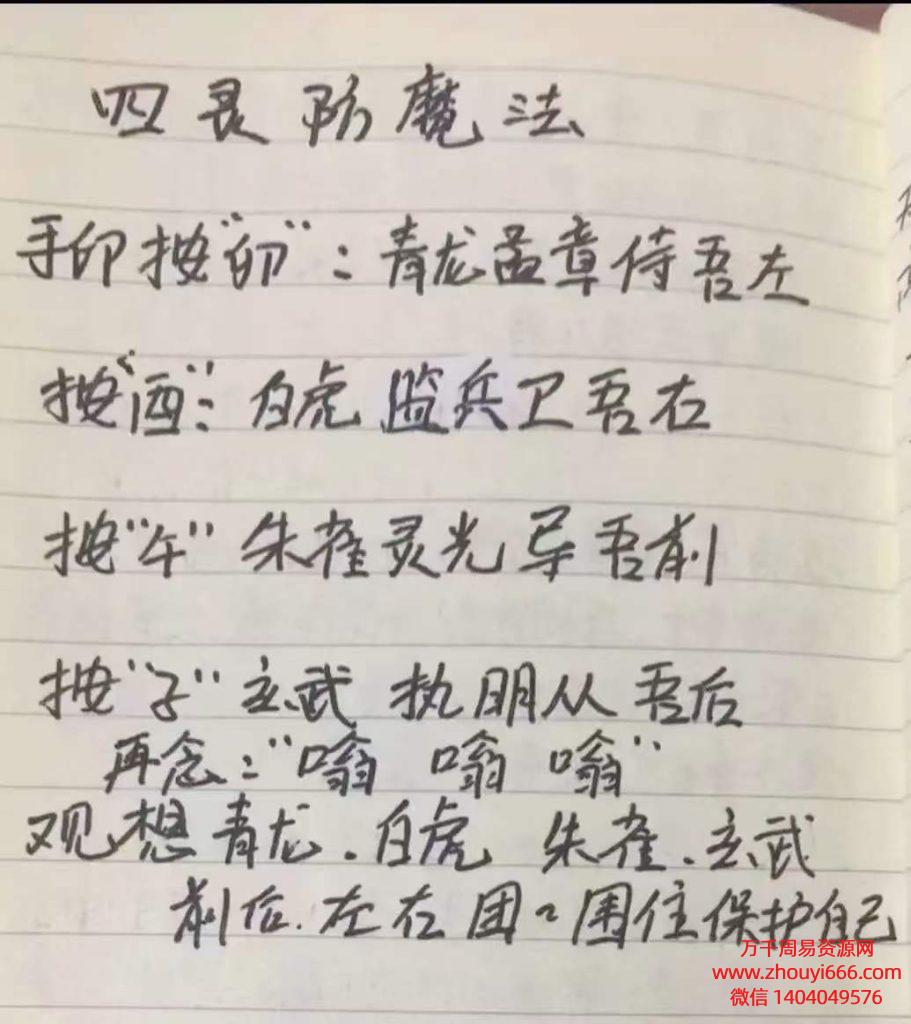 四灵防魔法
手印按"卯"：青龙孟章侍吾左
按"酉"：白虎 监兵卫吾右
按"午"朱雀灵光导吾前
按"子"玄武 执明从吾后
再念："嗡 嗡 嗡"
观想青龙.白虎 朱雀.玄武
前后.左右团々围住保护自己
万千周易资源网
www.zhouyi666.com
微信 1404049576